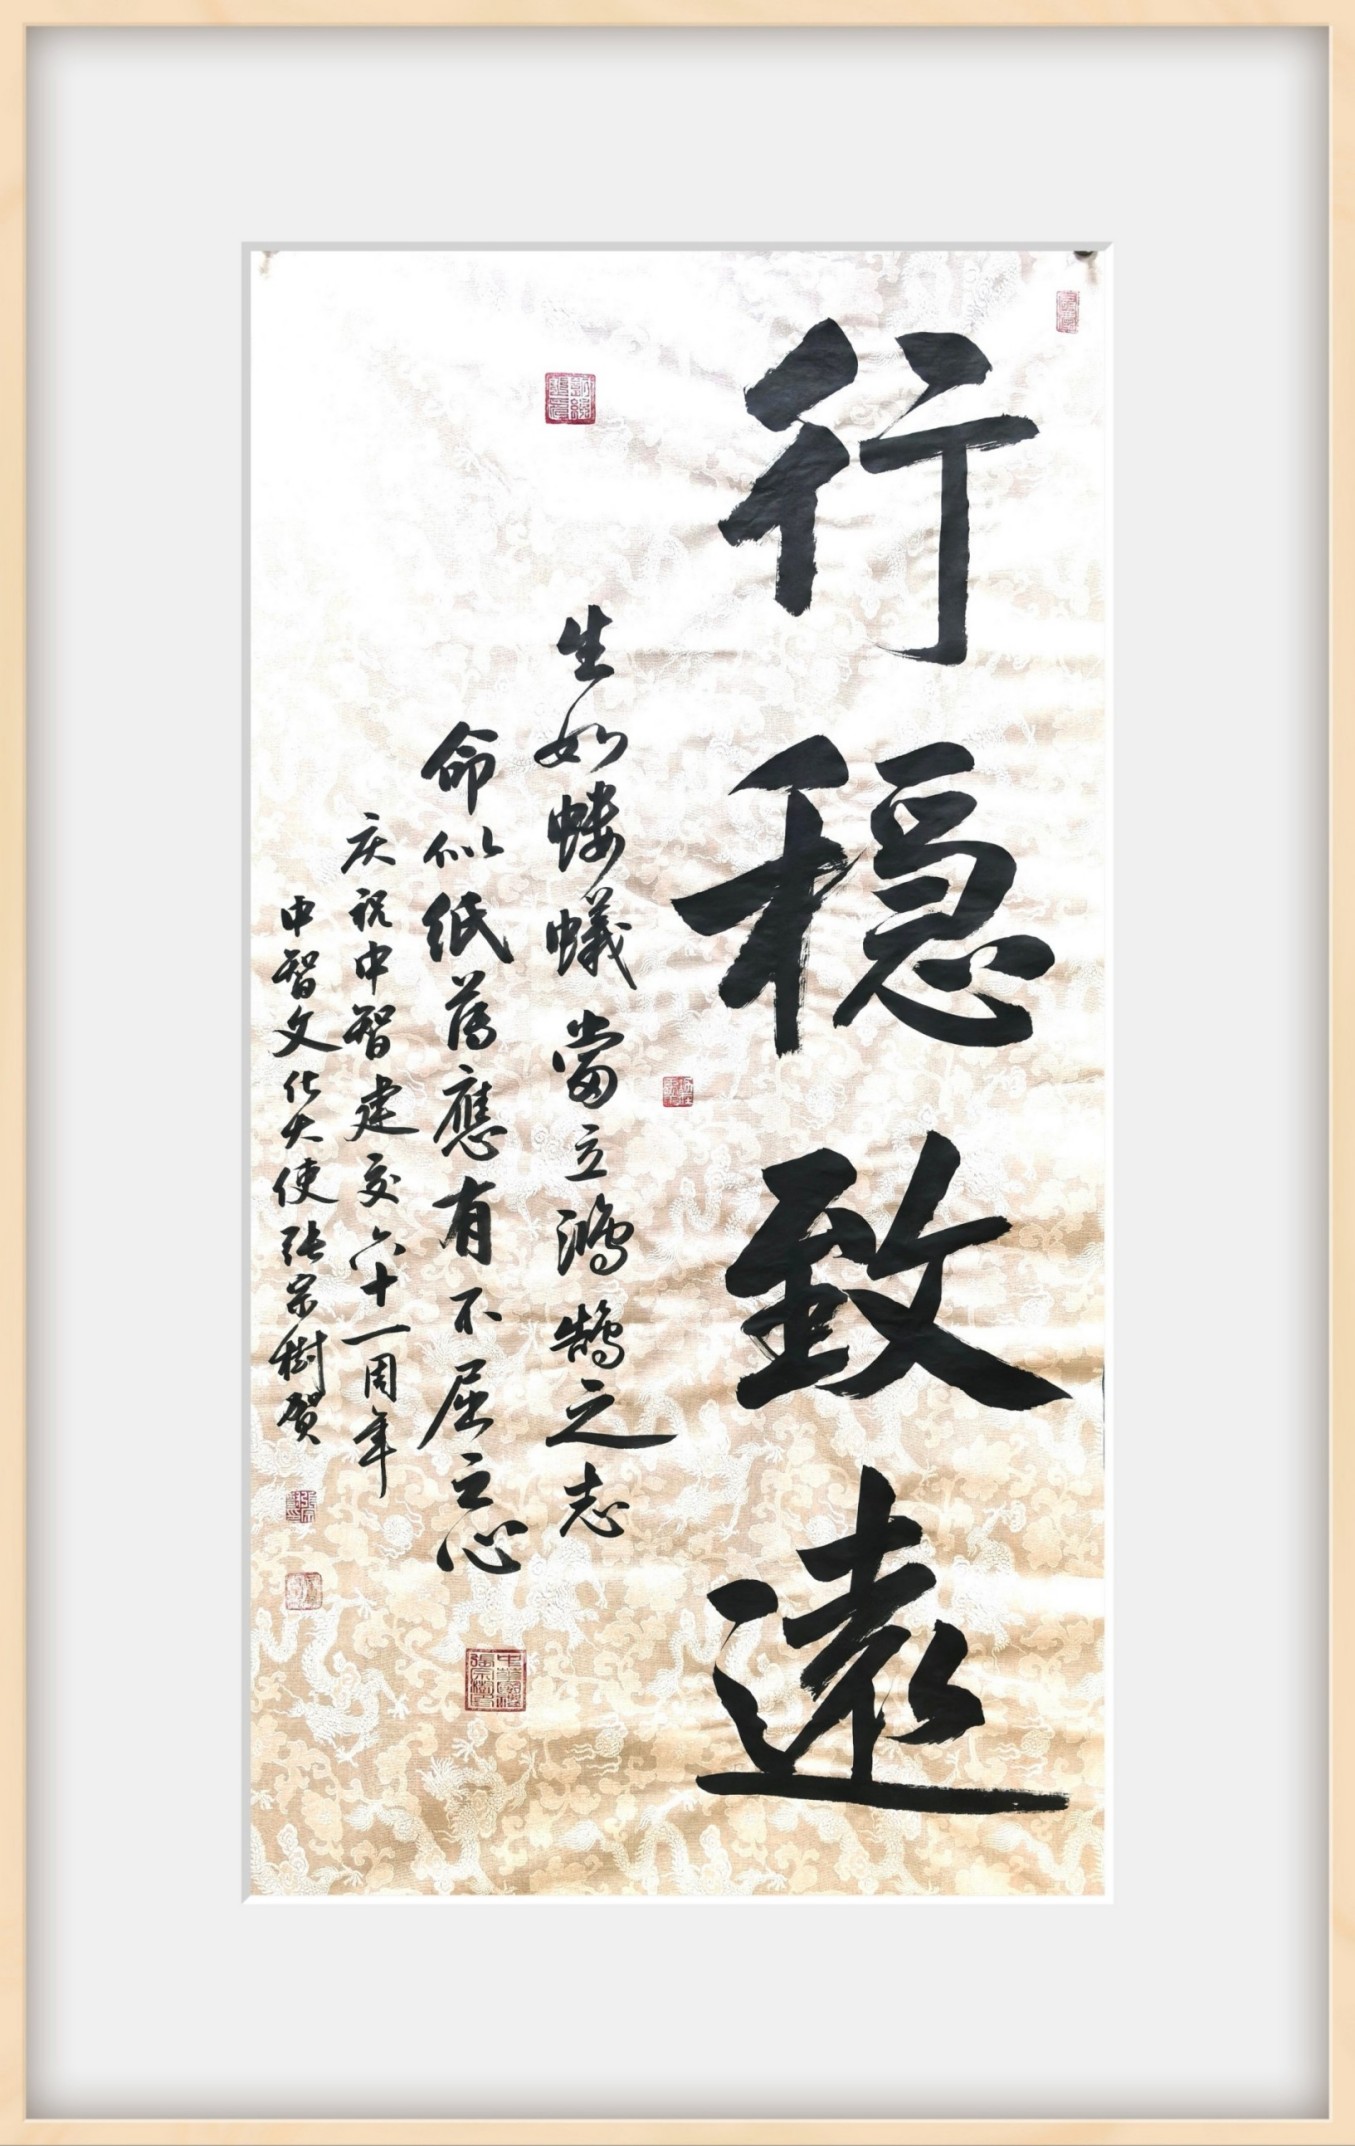 行穩致遠
生如蝼蟻當立鴻鹄之志
命似纸薄應有不屈之心
庆祝中智建交六十一周年
中智文化大使张宗樹贺